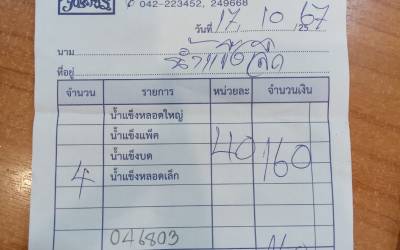 042-223452, 249668
วันที่ 17 10 67
นาม น้ำแข็งหลอด
ที่อยู่
จำนวน รายการ หน่วยละ จำนวนเงิน
น้ำแข็งหลอดใหญ่
น้ำแข็งแพ็ค
น้ำแข็งบด 40 160
4 น้ำแข็งหลอดเล็ก
046803